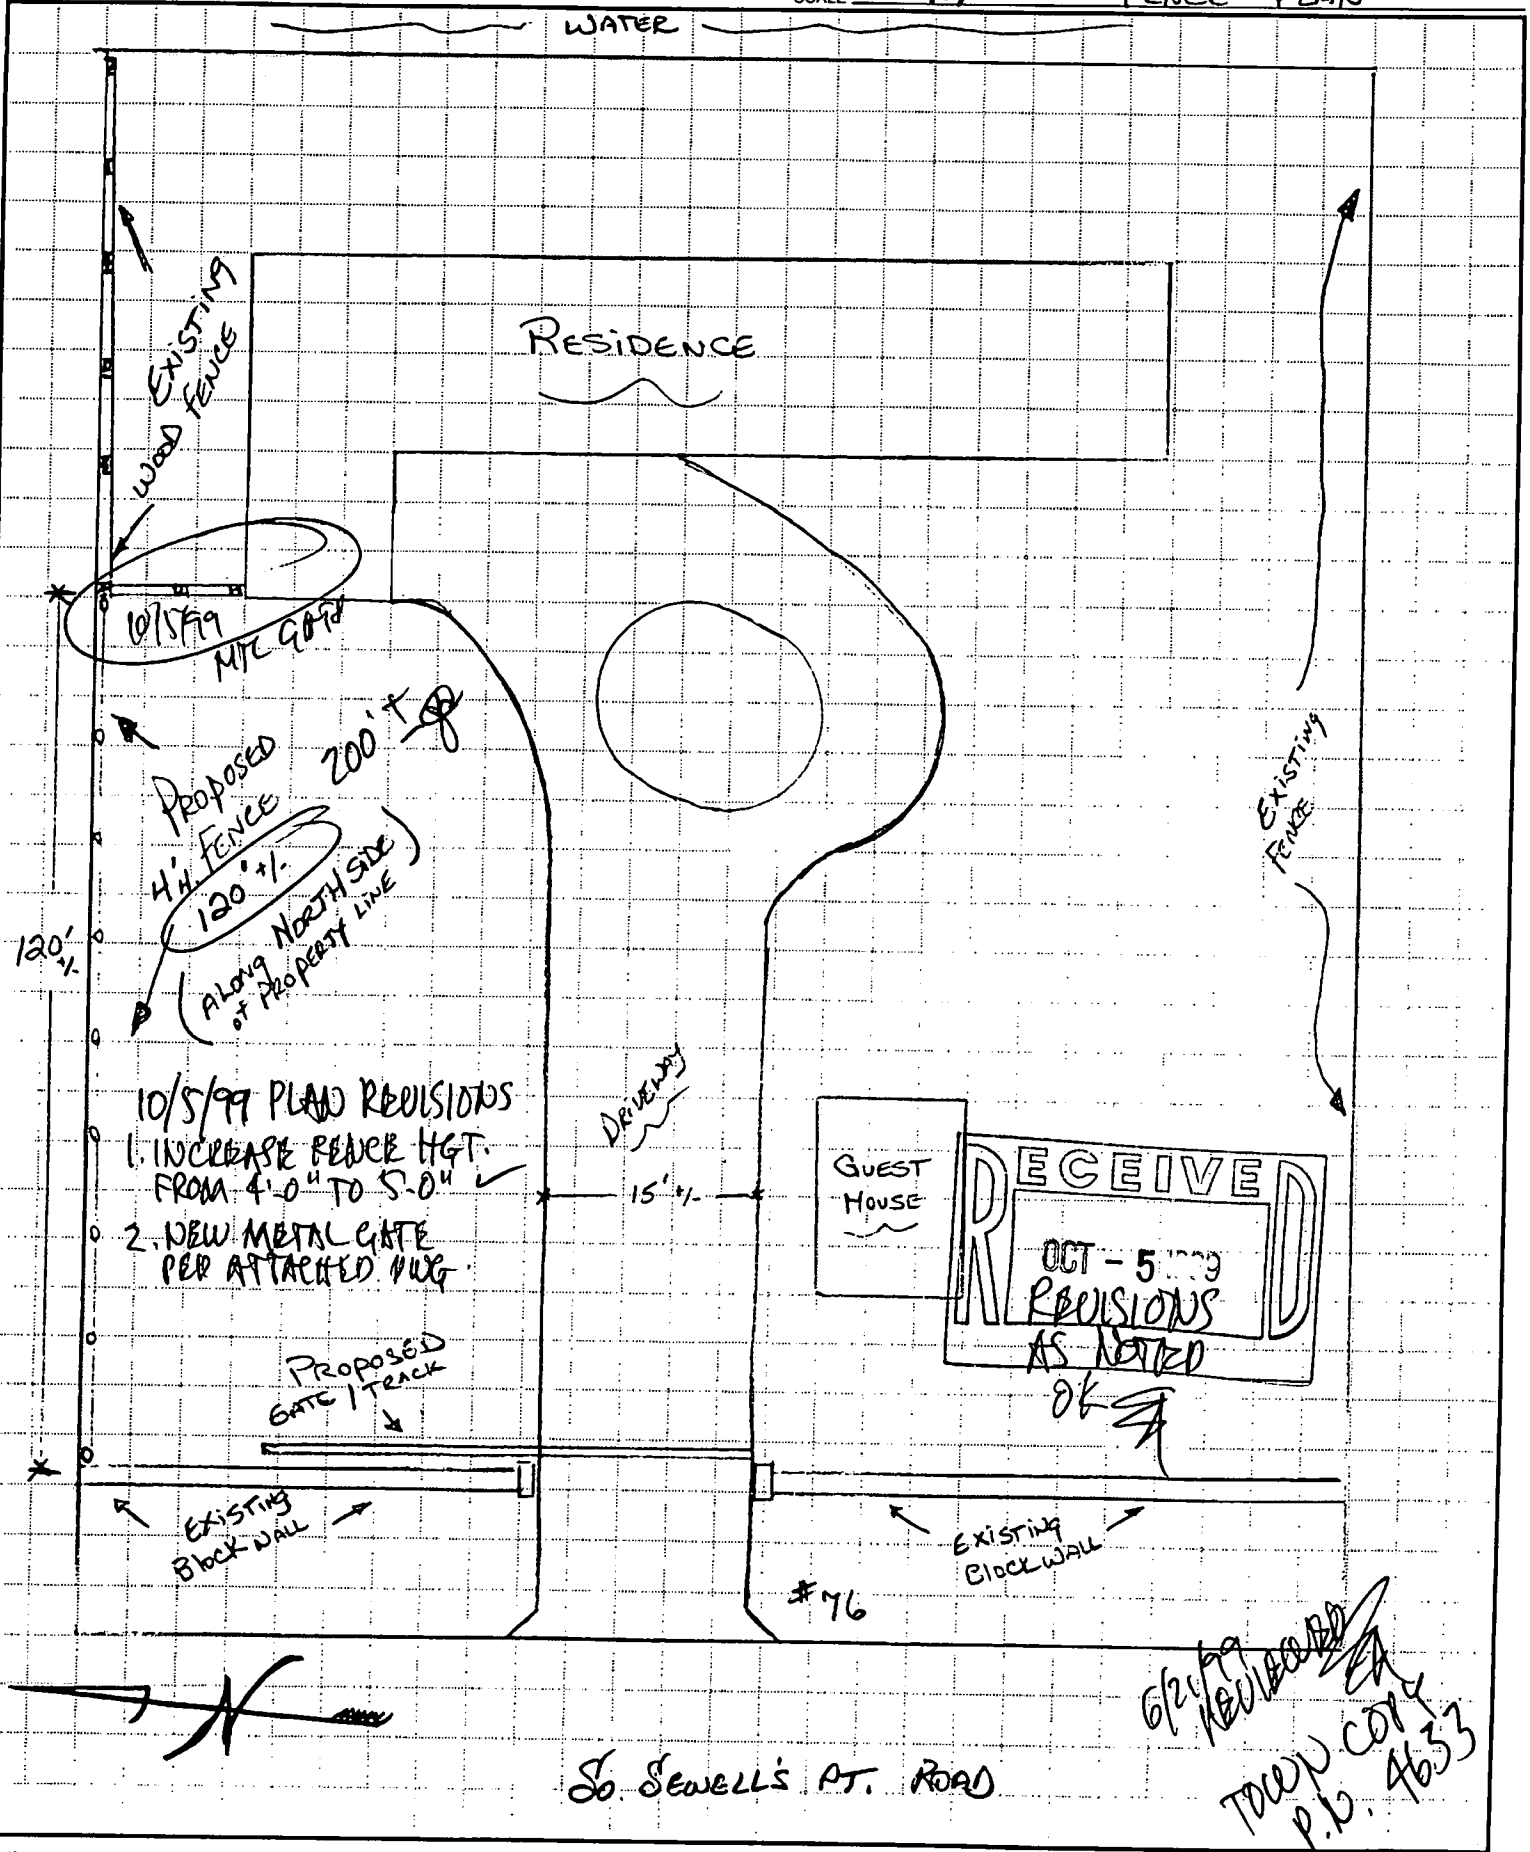 SCALE
FENCE PLAN
WATER
EXISTING
WOOD FENCE
RESIDENCE
10/5/99
MTL GATE
PROPOSED
4'H. FENCE
200' ±
120' +/-
(ALONG NORTH SIDE
of PROPERTY LINE)
120'
+/-
EXISTING
FENCE
10/5/99 PLAN REVISIONS
1. INCREASE FENCE HGT.
FROM 4'-0" TO 5-0" ✓
2. NEW METAL GATE
PER ATTACHED DWG.
DRIVEWAY
15' +/-
GUEST
HOUSE
RECEIVED
OCT - 5
REVISIONS
AS NOTED
OK
PROPOSED
GATE / TRACK
EXISTING
BLOCK WALL
EXISTING
BLOCK WALL
#76
N
So. SEWELL'S PT. ROAD
6/21/99
REVIEWED
TOWN COPY
P.N. 4633